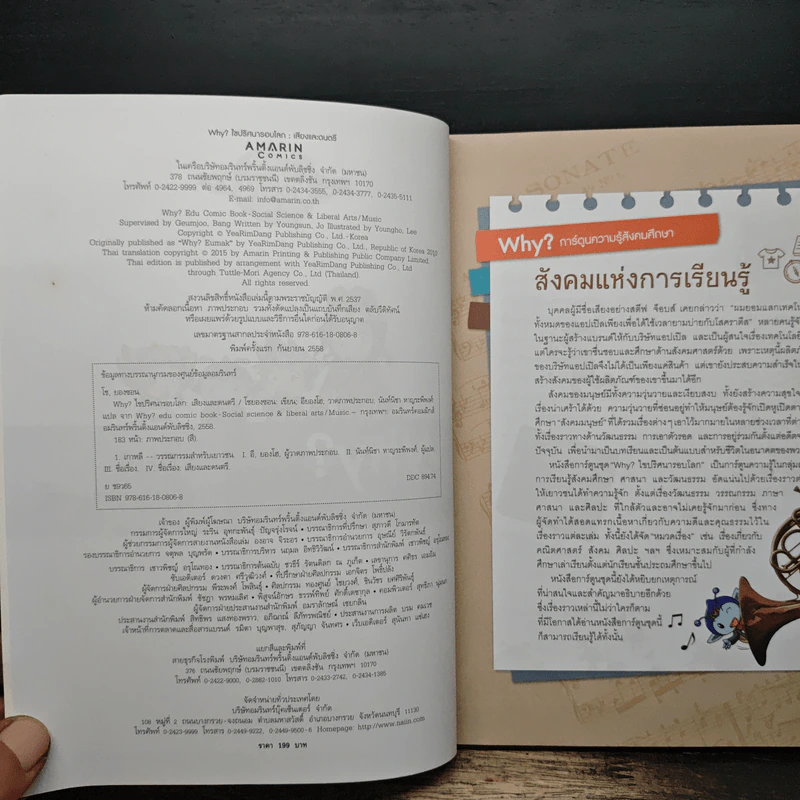 Why? ไขปริศนารอบโลก : เสียงและดนตรี
AMARIN
COMICS
ในเครือบริษัทอมรินทร์พริ้นติ้งแอนด์พับลิชชิ่ง จำกัด (มหาชน)
378 ถนนชัยพฤกษ์ (บรมราชชนนี) เขตตลิ่งชัน กรุงเทพฯ 10170
โทรศัพท์ 0-2422-9999 ต่อ 4964, 4969 โทรสาร 0-2434-3555, 0-2434-3777, 0-2435-5111
E-mail: info@amarin.co.th
Why? Edu Comic Book-Social Science & Liberal Arts/Music
Supervised by Geumjoo, Bang Written by Youngsun, Jo Illustrated by Youngho, Lee
Copyright © YeaRimDang Publishing Co., Ltd.-Korea
Originally published as "Why? Eumak" by YeaRimDang Publishing Co., Ltd., Republic of Korea 2010
Thai translation copyright © 2015 by Amarin Printing & Publishing Public Company Limited
Thai edition is published by arrangement with YeaRimDang Publishing Co., Ltd
through Tuttle-Mori Agency Co., Ltd (Thailand).
All rights reserved.
สงวนลิขสิทธิ์หนังสือเล่มนี้ตามพระราชบัญญัติ พ.ศ. 2537
ห้ามคัดลอกเนื้อหา ภาพประกอบ รวมทั้งดัดแปลงเป็นแถบบันทึกเสียง ตลับวีดิทัศน์
หรือเผยแพร่ด้วยรูปแบบและวิธีการอื่นใดก่อนได้รับอนุญาต
เลขมาตรฐานสากลประจำหนังสือ 978-616-18-0806-8
พิมพ์ครั้งแรก กันยายน 2558
ข้อมูลทางบรรณานุกรมของศูนย์ข้อมูลอมรินทร์
โช, ยองซอน.
Why? ไขปริศนารอบโลก: เสียงและดนตรี / โชยองซอน: เขียน; อียองโฮ, วาดภาพประกอบ; นันท์นิชา หาญระพีพงศ์
แปล จาก Why? edu comic book-Social science & liberal arts/Music.-- กรุงเทพฯ: อมรินทร์คอมมิกส์
อมรินทร์พริ้นติ้งแอนด์พับลิชชิ่ง, 2558.
183 หน้า: ภาพประกอบ (สี)
1. เกาหลี -- วรรณกรรมสำหรับเยาวชน. I. อี, ยองโฮ, ผู้วาดภาพประกอบ. II. นันท์นิชา หาญระพีพงศ์, ผู้แปล
III. ชื่อเรื่อง. IV. ชื่อเรื่อง: เสียงและดนตรี.
DDC 894.74
ISBN 978-616-18-0806-8
เจ้าของ ผู้พิมพ์ผู้โฆษณา บริษัทอมรินทร์พริ้นติ้งแอนด์พับลิชชิ่ง จำกัด (มหาชน)
แยกสีและพิมพ์ที่
สายธุรกิจโรงพิมพ์ บริษัทอมรินทร์พริ้นติ้งแอนด์พับลิชชิ่ง จำกัด (มหาชน)
376 ถนนชัยพฤกษ์ (บรมราชชนนี) เขตตลิ่งชัน กรุงเทพฯ 10170
โทรศัพท์ 0-2422-9000, 0-2882-1010 โทรสาร 0-2433-2742, 0-2434-1385
จัดจำหน่ายทั่วประเทศโดย
บริษัทอมรินทร์บุ๊คเซ็นเตอร์ จำกัด
108 หมู่ที่ 2 ถนนบางกรวย-จงถนอม ตำบลมหาสวัสดิ์ อำเภอบางกรวย จังหวัดนนทบุรี 11130
โทรศัพท์ 0-2423-9999 โทรสาร 0-2449-9222, 0-2449-9500-6 Homepage: http://www.naiin.com
ราคา 199 บาท
SONATE
Why? การ์ตูนความรู้สังคมศึกษา
สังคมแห่งการเรียนรู้
บุคคลผู้มีชื่อเสียงอย่างสตีฟ จ็อบส์ เคยกล่าวว่า "ผมยอมแลกเทคโน
ทั้งหมดของแอปเปิลเพียงเพื่อได้ใช้เวลายามบ่ายกับโสคราตีส" หลายคนรู้จั
ในฐานะผู้สร้างแบรนด์ให้กับบริษัทแอปเปิล และเป็นผู้สนใจเรื่องเทคโนโลยี
แต่ใครจะรู้ว่าเขาชื่นชอบและศึกษาด้านสังคมศาสตร์ด้วย เพราะเหตุนี้ผลิตภั
ของบริษัทแอปเปิลจึงไม่ได้เป็นเพียงแค่สินค้า แต่เขายังประสบความสำเร็จใ
สร้างสังคมของผู้ใช้ผลิตภัณฑ์ของเขาขึ้นมาได้อีก
สังคมของมนุษย์มีทั้งความวุ่นวายและเงียบสงบ ทั้งยังสร้างความสุขใจ
เรื่องน่าเศร้าได้ด้วย ความวุ่นวายที่ซ่อนอยู่ทำให้มนุษย์ต้องรู้จักเปิดหูเปิดตา
ศึกษา "สังคมมนุษย์" ที่ได้รวมเรื่องต่างๆ เอาไว้มากมายในหลายช่วงเวลาที่ต่า
ทั้งเรื่องราวทางด้านวัฒนธรรม การเอาตัวรอด และการอยู่ร่วมกันตั้งแต่อดีตจ
ปัจจุบัน เพื่อนำมาเป็นบทเรียนและเป็นต้นแบบสำหรับชีวิตในอนาคตของพวก
หนังสือการ์ตูนชุด "Why? ไขปริศนารอบโลก" เป็นการ์ตูนความรู้ในกลุ่ม
การเรียนรู้สังคมศึกษา ศาสนา และวัฒนธรรม อัดแน่นไปด้วยเรื่องราวต่
ให้เยาวชนได้ทำความรู้จัก ตั้งแต่เรื่องวัฒนธรรม วรรณกรรม ภาษา
ศาสนา และศิลปะ ที่ใกล้ตัวและอาจไม่เคยรู้จักมาก่อน ซึ่งทาง
ผู้จัดทำได้สอดแทรกเนื้อหาเกี่ยวกับความดีและคุณธรรมไว้ใน
เรื่องราวแต่ละเล่ม ทั้งนี้ยังได้จัด "หมวดเรื่อง" เช่น เรื่องเกี่ยวกับ
คณิตศาสตร์ สังคม ศิลปะ ฯลฯ ซึ่งเหมาะสมกับผู้ที่กำลัง
ศึกษาเล่าเรียนตั้งแต่นักเรียนชั้นประถมศึกษาขึ้นไป
หนังสือการ์ตูนชุดนี้ยังได้หยิบยกเหตุการณ์
ที่น่าสนใจและสำคัญมาอธิบายอีกด้วย
ซึ่งเรื่องราวเหล่านี้ไม่ว่าใครก็ตาม
ที่มีโอกาสได้อ่านหนังสือการ์ตูนชุดนี้
ก็สามารถเรียนรู้ได้ทั้งนั้น